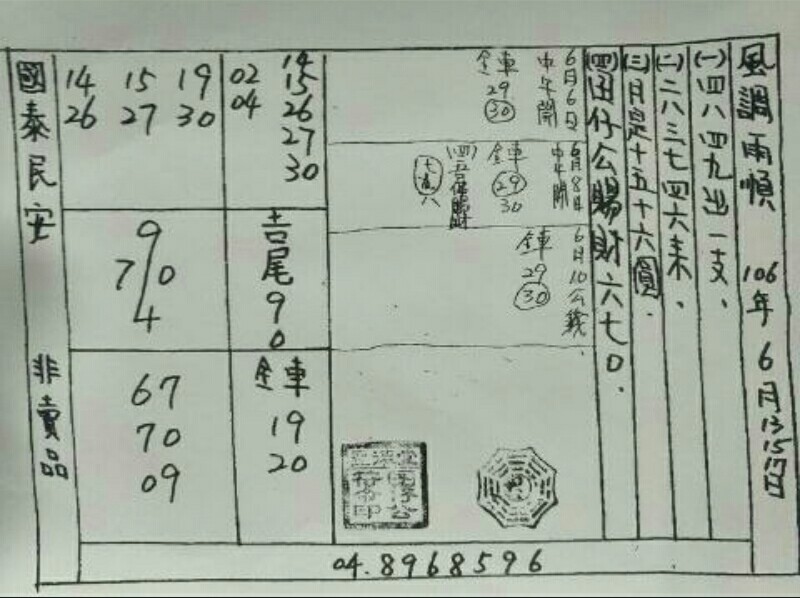 風調雨順 106年6月13 15 17日
(一)四八四九出一支、
(二)二八三七四六來、
(三)月是十五十六圓、
(四)囝仔公賜財六七0、
6月6日
中午開
金車
29
30
6月8日
中午開
金車
29
30
(四)五合併賜財
6月10公錢、
金車
29
30
14
15
02 26
04 27
30
吉尾
9
0
金車
19
20
14 15 19
26 27 30
9
7/0
4
67
70
09
國泰民安 非賣品
04.8968596